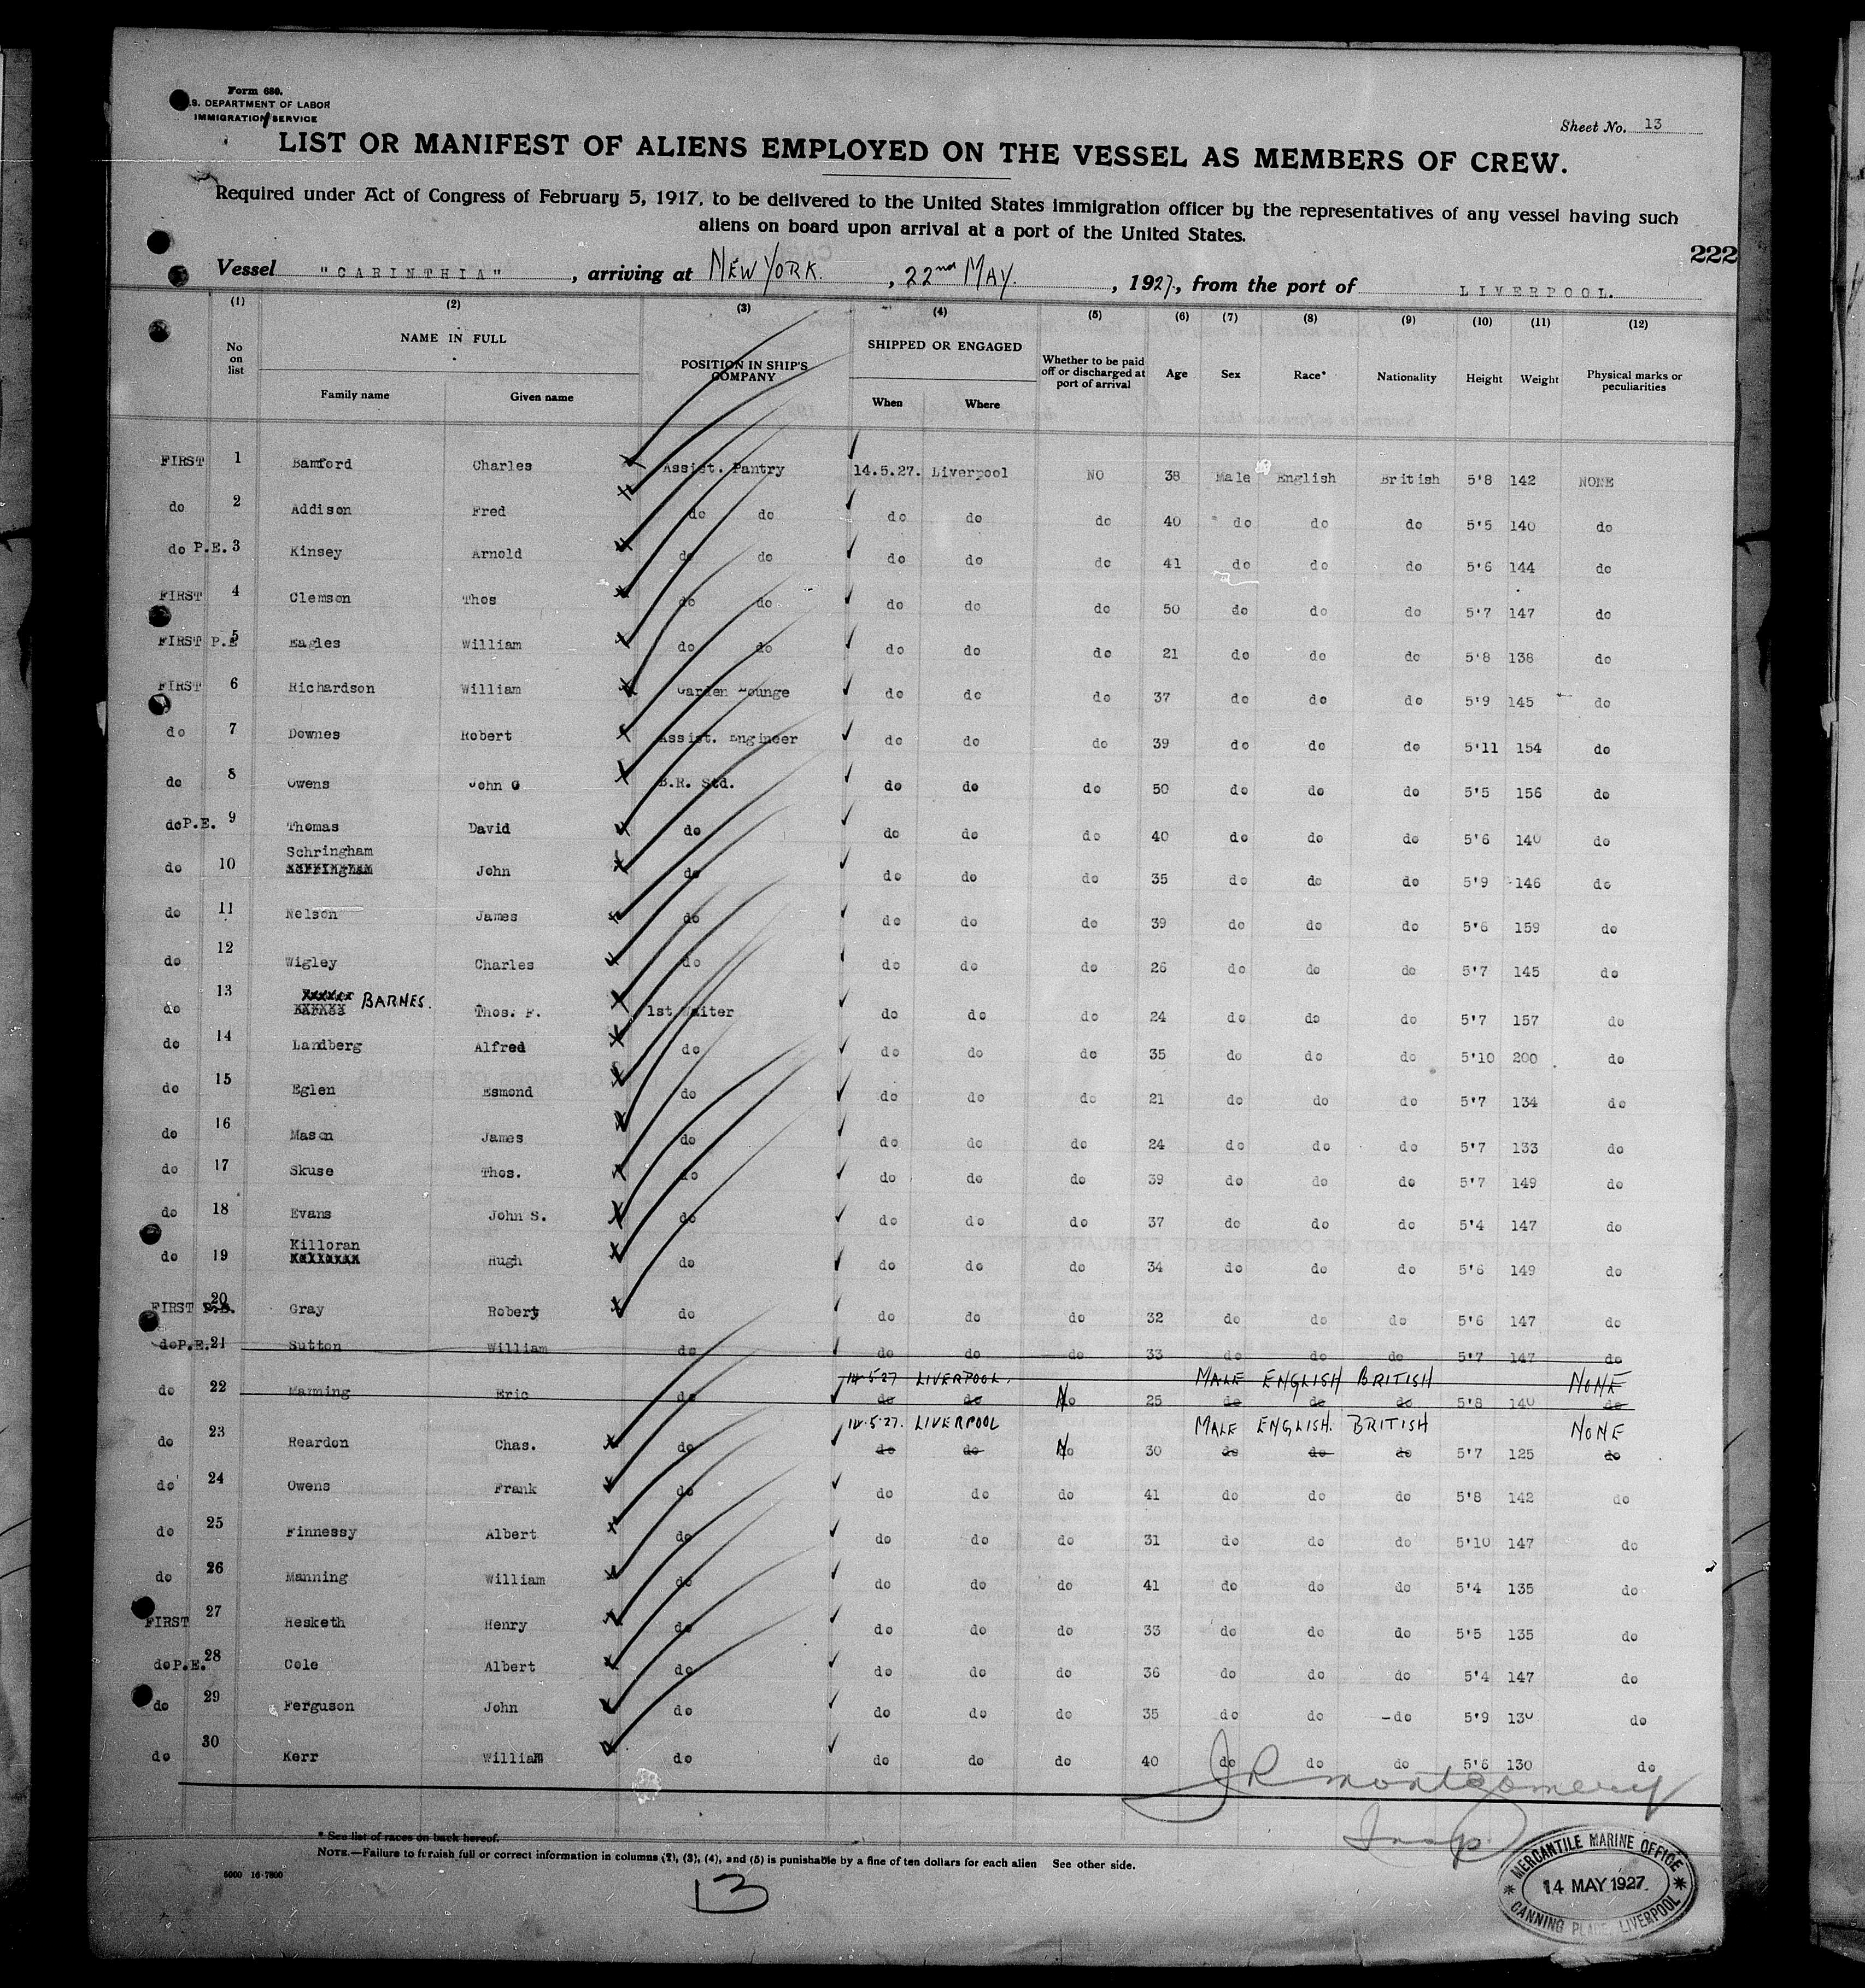 Form 680.
U.S. DEPARTMENT OF LABOR
IMMIGRATION SERVICE
Sheet No. 13
LIST OR MANIFEST OF ALIENS EMPLOYED ON THE VESSEL AS MEMBERS OF CREW.
Required under Act of Congress of February 5, 1917, to be delivered to the United States immigration officer by the representatives of any vessel having such
aliens on board upon arrival at a port of the United States.
222
Vessel "CARINTHIA", arriving at NEW YORK., 22nd MAY., 1927, from the port of LIVERPOOL.
(1) (2) (3) (4) (5) (6) (7) (8) (9) (10) (11) (12)
No on list NAME IN FULL Family name Given name POSITION IN SHIP'S COMPANY SHIPPED OR ENGAGED When Where Whether to be paid off or discharged at port of arrival Age Sex Race* Nationality Height Weight Physical marks or peculiarities
FIRST 1 Bamford Charles Assist. Pantry 14.5.27. Liverpool NO 38 Male English British 5'8 142 NONE
do 2 Addison Fred do do do do do 40 do do do 5'5 140 do
do P.E. 3 Kinsey Arnold do do do do do 41 do do do 5'6 144 do
FIRST 4 Clemson Thos do do do do do 50 do do do 5'7 147 do
FIRST P.E 5 Eagles William do do do do do 21 do do do 5'8 138 do
FIRST 6 Richardson William Garden Lounge do do do 37 do do do 5'9 145 do
do 7 Downes Robert Assist. Engineer do do do 39 do do do 5'11 154 do
do 8 Owens John O B.R. Std. do do do 50 do do do 5'5 156 do
do P.E. 9 Thomas David do do do do 40 do do do 5'6 140 do
Schringham
do 10 John do do do do 35 do do do 5'9 146 do
do 11 Nelson James do do do do 39 do do do 5'6 159 do
do 12 Wigley Charles do do do do 26 do do do 5'7 145 do
do 13 BARNES. Thos. F. 1st Waiter do do do 24 do do do 5'7 157 do
do 14 Landberg Alfred do do do do 35 do do do 5'10 200 do
do 15 Eglen Esmond do do do do 21 do do do 5'7 134 do
do 16 Mason James do do do do 24 do do do 5'7 133 do
do 17 Skuse Thos. do do do do 39 do do do 5'7 149 do
do 18 Evans John S. do do do do 37 do do do 5'4 147 do
Killoran
do 19 Hugh do do do do 34 do do do 5'6 149 do
FIRST P.E. 20 Gray Robert do do do do 32 do do do 5'6 147 do
do P.E. 21 Sutton William do do do do 33 do do do 5'7 147 do
14.5.27 LIVERPOOL. MALE ENGLISH BRITISH NONE
do 22 Manning Eric do do do No 25 do do do 5'8 140 do
14.5.27. LIVERPOOL MALE ENGLISH. BRITISH NONE
do 23 Reardon Chas. do do do No 30 do do do 5'7 125 do
do 24 Owens Frank do do do do 41 do do do 5'8 142 do
do 25 Finnessy Albert do do do do 31 do do do 5'10 147 do
do 26 Manning William do do do do 41 do do do 5'4 135 do
FIRST 27 Hesketh Henry do do do do 33 do do do 5'5 135 do
do P.E. 28 Cole Albert do do do do 36 do do do 5'4 147 do
do 29 Ferguson John do do do do 35 do do do 5'9 130 do
do 30 Kerr William do do do do 40 do do do 5'6 130 do
J R Montgomery
Insp.
* See list of races on back hereof.
NOTE.—Failure to furnish full or correct information in columns (2), (3), (4), and (5) is punishable by a fine of ten dollars for each alien See other side.
5000 16-7800
13
MERCANTILE MARINE OFFICE
14 MAY 1927
CANNING PLACE, LIVERPOOL